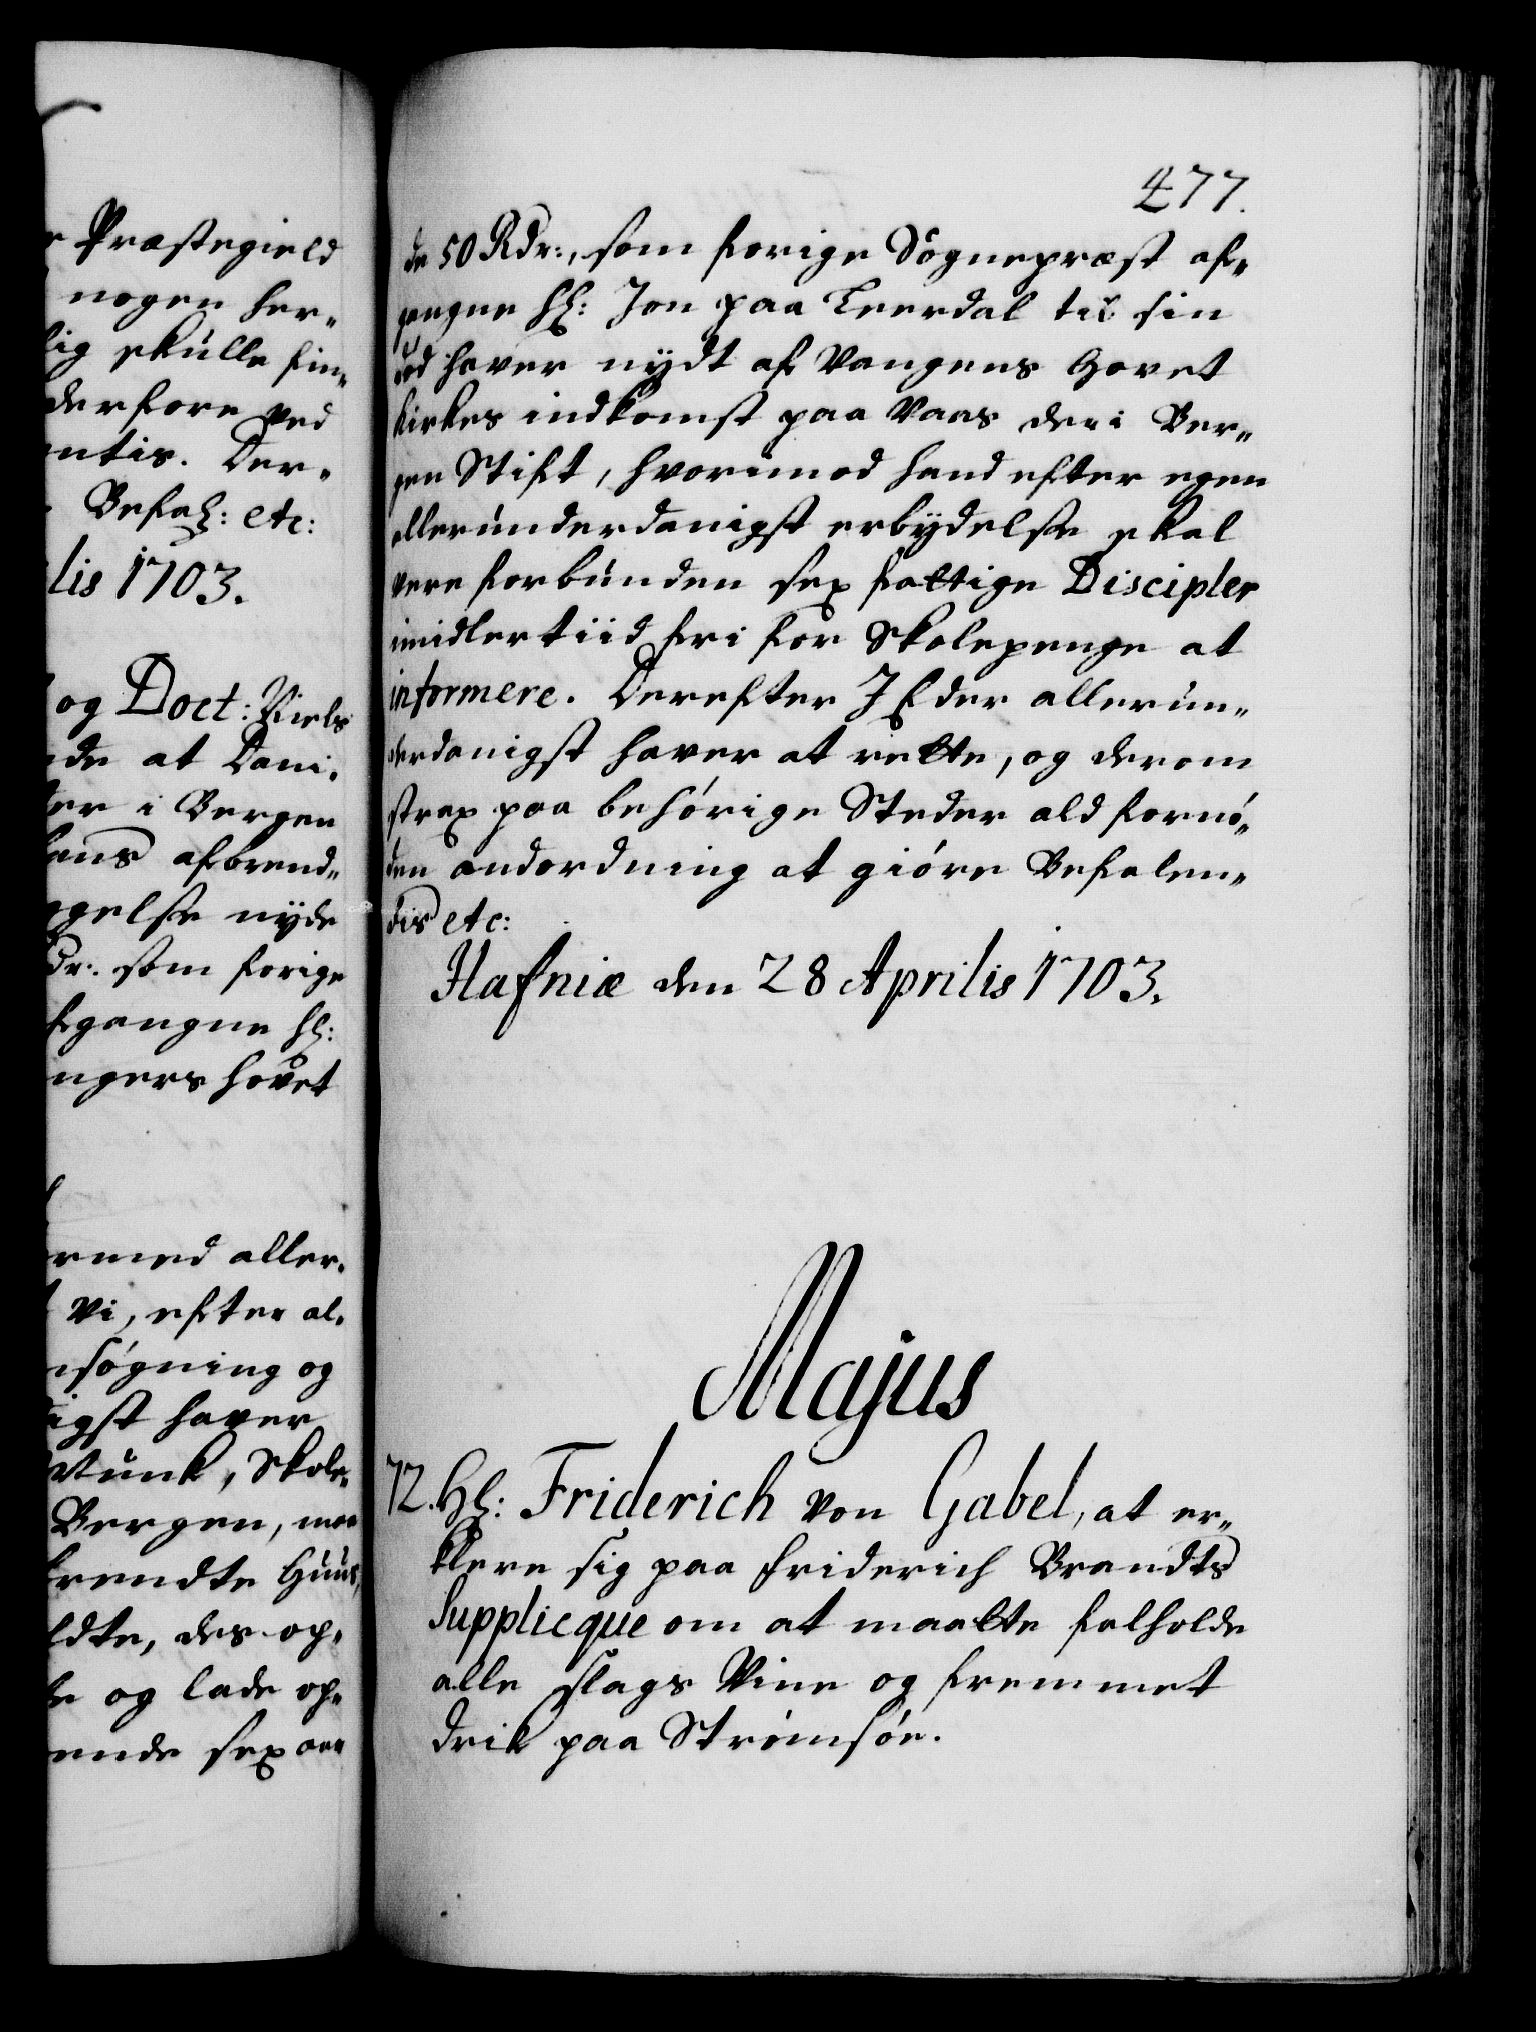 e Præstegield
nogen her„
lig skulle fin„
derfore ved
entis. Der„
Befah: etc:
lis 1703.
og Doct: Niels
ede at Dani„
ter i Bergen
hans afbrend„
ggelse nyde
dr: som forige
fgangne Hl:
ngers hovet
ermed aller„
t vi, efter al„
nsøgning og
igst haver
Munk, Skole„
Bergen, maa
brendte Huus,
ldte, des op„
de og lade op„
ende sex aar
477.
de 50 Rdr:, som forige Sognepræst af„
gangne Hl: Jon paa Leerdal til sin
död haver nydt af Vangens Hovet
kirkes indkomst paa Vaas der i Ber„
gen Stift, hvorimod hand efter egen
allerunderdanigst erbydelse skal
vere forbunden sex fattige Discipler
imidlertiid fri for Skolepenge at
informere. Derefter I Eder allerun„
derdanigst haver at rette, og derom
strax paa behörige Steder ald fornö„
den andordning at giöre Befalen„
dis etc:
Hafniæ den 28 Aprilis 1703.
Majus
72. Hl: Friderich von Gabel, at er„
klere sig paa Friderich Brandts
Supplicque om at maatte falholde
alle slags Vine og fremmet
drik paa Strömsöe.